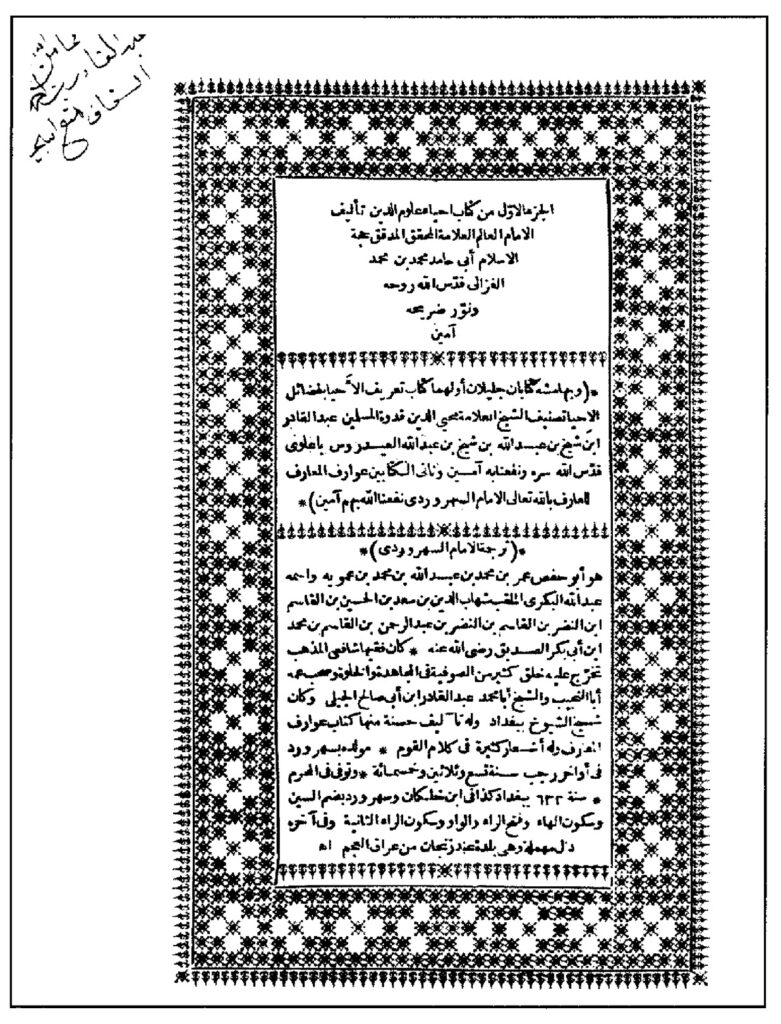 الجزء الاول من كتاب احياء علوم الدين تأليف
الامام العالم العلامة المحقق المدقق حجة
الاسلام أبي حامد محمد بن محمد
الغزالى قدّس الله روحه
ونوّر ضريحه
آمين
*(وبهامشه كتابان جليلان أولهما كتاب تعريف الاحياء بفضائل
الاحياء تصنيف الشيخ العلامة محيي الدين قدوة المسلمين عبد القادر
ابن شيخ بن عبد الله بن شيخ بن عبد الله العيدروس باعلوى
قدّس الله سره ونفعنا به آمين وثانى الكتابين عوارف المعارف
للعارف بالله تعالى الامام السهروردى نفعنا الله بهم آمين)*
*(ترجمة الامام السهروردى)*
هو أبو حفص عمر بن محمد بن عبد الله بن محمد بن عمويه واسمه
عبد الله البكرى الملقب شهاب الدين بن سعد بن الحسين بن القاسم
ابن النضر بن القاسم بن النضر بن عبد الرحمن بن القاسم بن محمد
ابن أبى بكر الصديق رضى الله عنه * كان فقيها شافعى المذهب
تخرّج عليه خلق كثير من الصوفية فى المجاهدة والخلوة وصحب عمه
أبا النجيب والشيخ أبا محمد عبد القادر ابن أبى صالح الجيلى وكان
شيخ الشيوخ ببغداد وله تآليف حسنة منها كتاب عوارف
المعارف وله أشعار كثيرة فى كلام القوم * مولده بسهرورد
فى أواخر رجب سنة تسع وثلاثين وخمسمائة * وتوفى فى المحرم
* سنة ٦٣٢ ببغداد كذا فى ابن خلكان وسهرورد بضم السين
وسكون الهاء وفتح الراء والواو وسكون الراء الثانية وفى آخره
دال مهملة وهى بلدة عند زنجان من عراق العجم اه
عبد القادر
السقاف